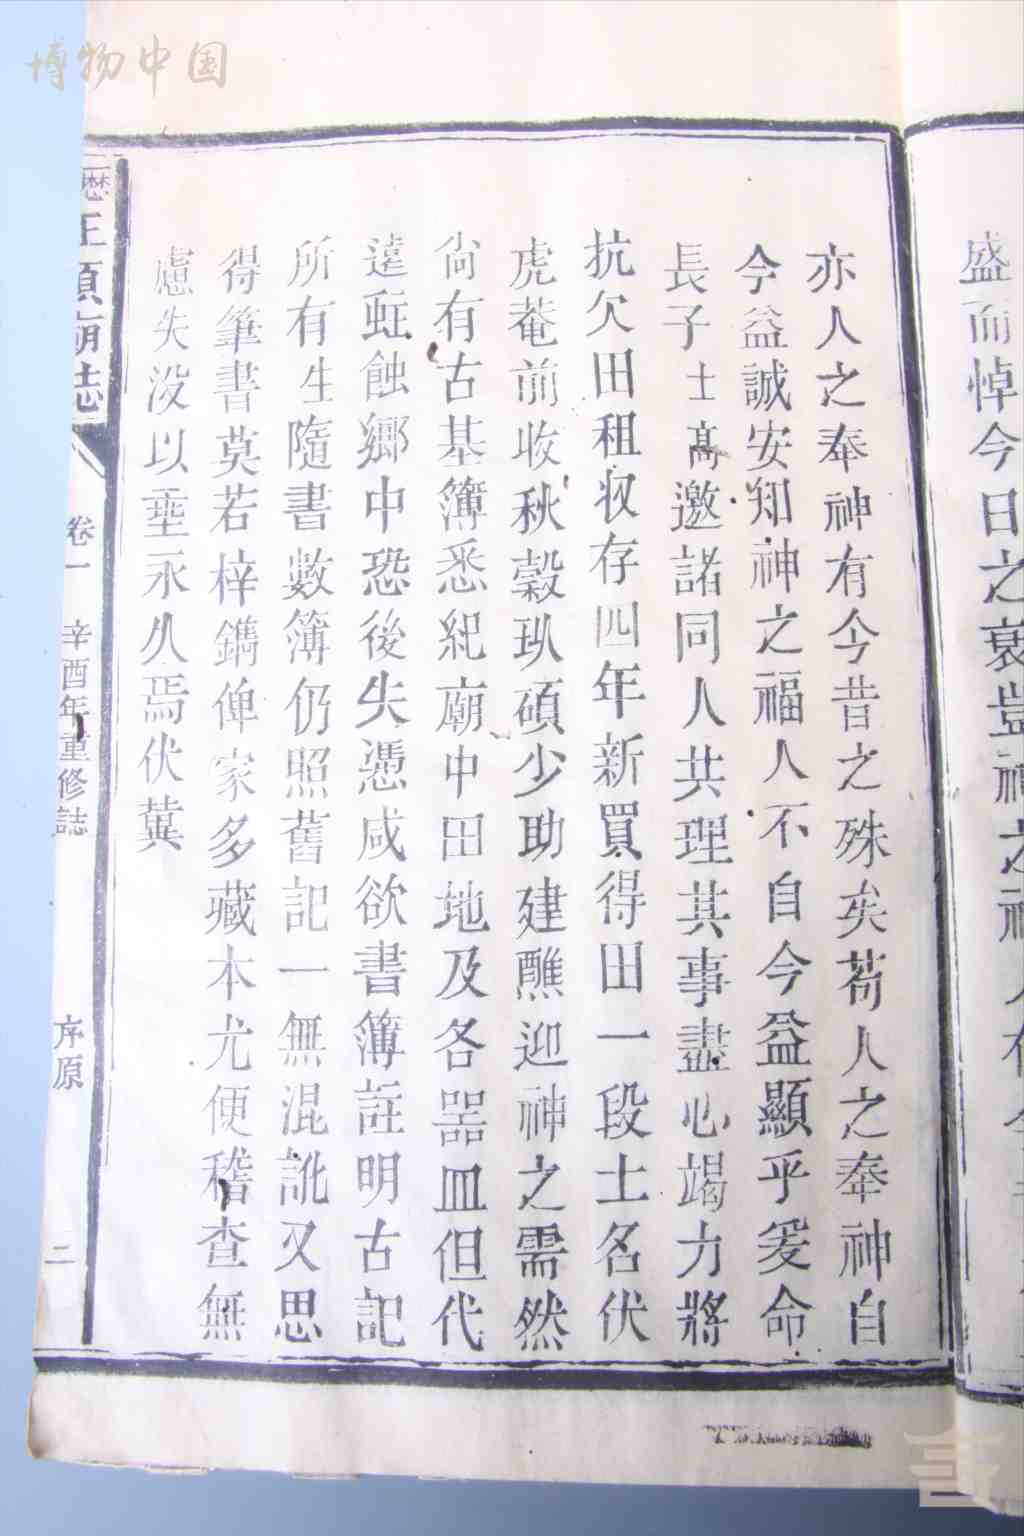 博物中国
盛而悼今日之衰豈神之神人
亦人之奉神有今昔之殊矣苟人之奉神自
今益誠安知神之福人不自今益顯乎爰命
長子士高邀諸同人共理其事盡心竭力將
抗欠田租収存四年新買得田一段土名伏
虎菴前收秋穀玖碩少助建醮迎神之需然
尚有古基簿悉紀廟中田地及各器皿但代
遠蚛蝕鄉中恐後失憑咸欲書簿註明古記
所有生隨書數簿仍照舊記一無混訛又思
得筆書莫若梓鐫俾家多藏本尤便稽查無
慮失没以垂永久焉伏冀
王項廟誌
卷一
辛酉年重修誌
序原
二